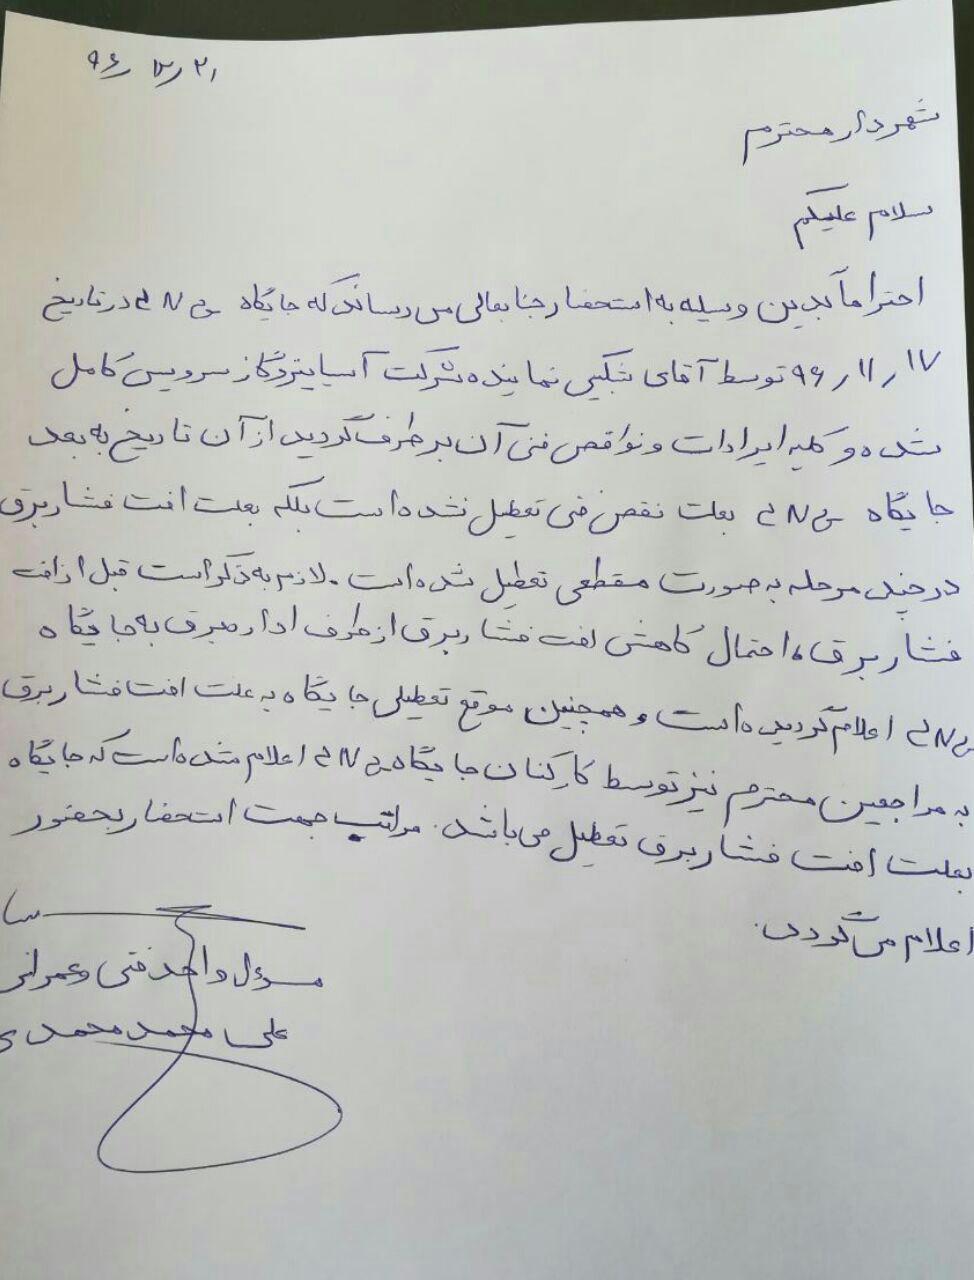 ۹۶٫ ۱۲٫ ۲۱
شهردار محترم
سلام علیکم
احتراماً بدین وسیله به استحضار جنابعالی می رساند که جایگاه سی N جی در تاریخ
۹۶٫ ۱۱٫ ۱۷ توسط آقای نماینده شرکت آسیا پتروگاز سرویس کامل
شده و کلیه ایرادات و نواقص فنی آن برطرف گردید از آن تاریخ به بعد
جایگاه سی N جی بعلت نقص فنی تعطیل نشده است بلکه بعلت افت فشار برق
در چند مرحله به صورت مقطعی تعطیل شده است. لازم به ذکر است قبل از افت
فشار برق، احتمال کاهش افت فشار برق از طرف اداره برق به جایگاه
سی N جی اعلام گردیده است و همچنین موقع تعطیلی جایگاه به علت افت فشار برق
به مراجعین محترم نیز توسط کارکنان جایگاه سی N جی اعلام شده است که جایگاه
بعلت افت فشار برق تعطیل می باشد. مراتب جهت استحضار بحضور
اعلام می گردد.
مسؤل واحد فنی و عمرانی
علی محمد محمدی